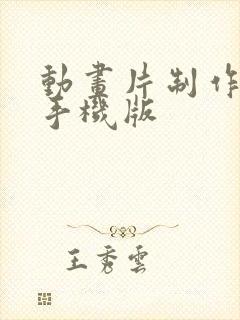 動畫片制作
手機版
王秀雲